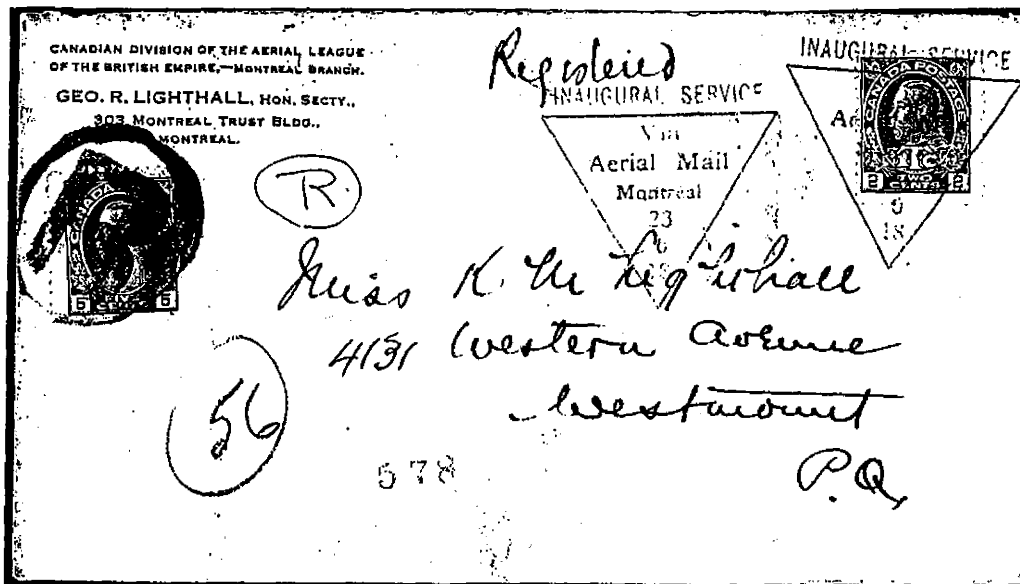 CANADIAN DIVISION OF THE AERIAL LEAGUE
OF THE BRITISH EMPIRE,—MONTREAL BRANCH.
GEO. R. LIGHTHALL, HON. SECTY.,
303 MONTREAL TRUST BLDG.,
MONTREAL.
Registered
INAUGURAL SERVICE
Via
Aerial Mail
Montreal
23
INAUGURAL SERVICE
18
CANADA POSTAGE
2 TWO CENTS 2
R.
CANADA
5 5
Miss K. M Lighthall
4131 Western Avenue
Westmount
P.Q.
56
578